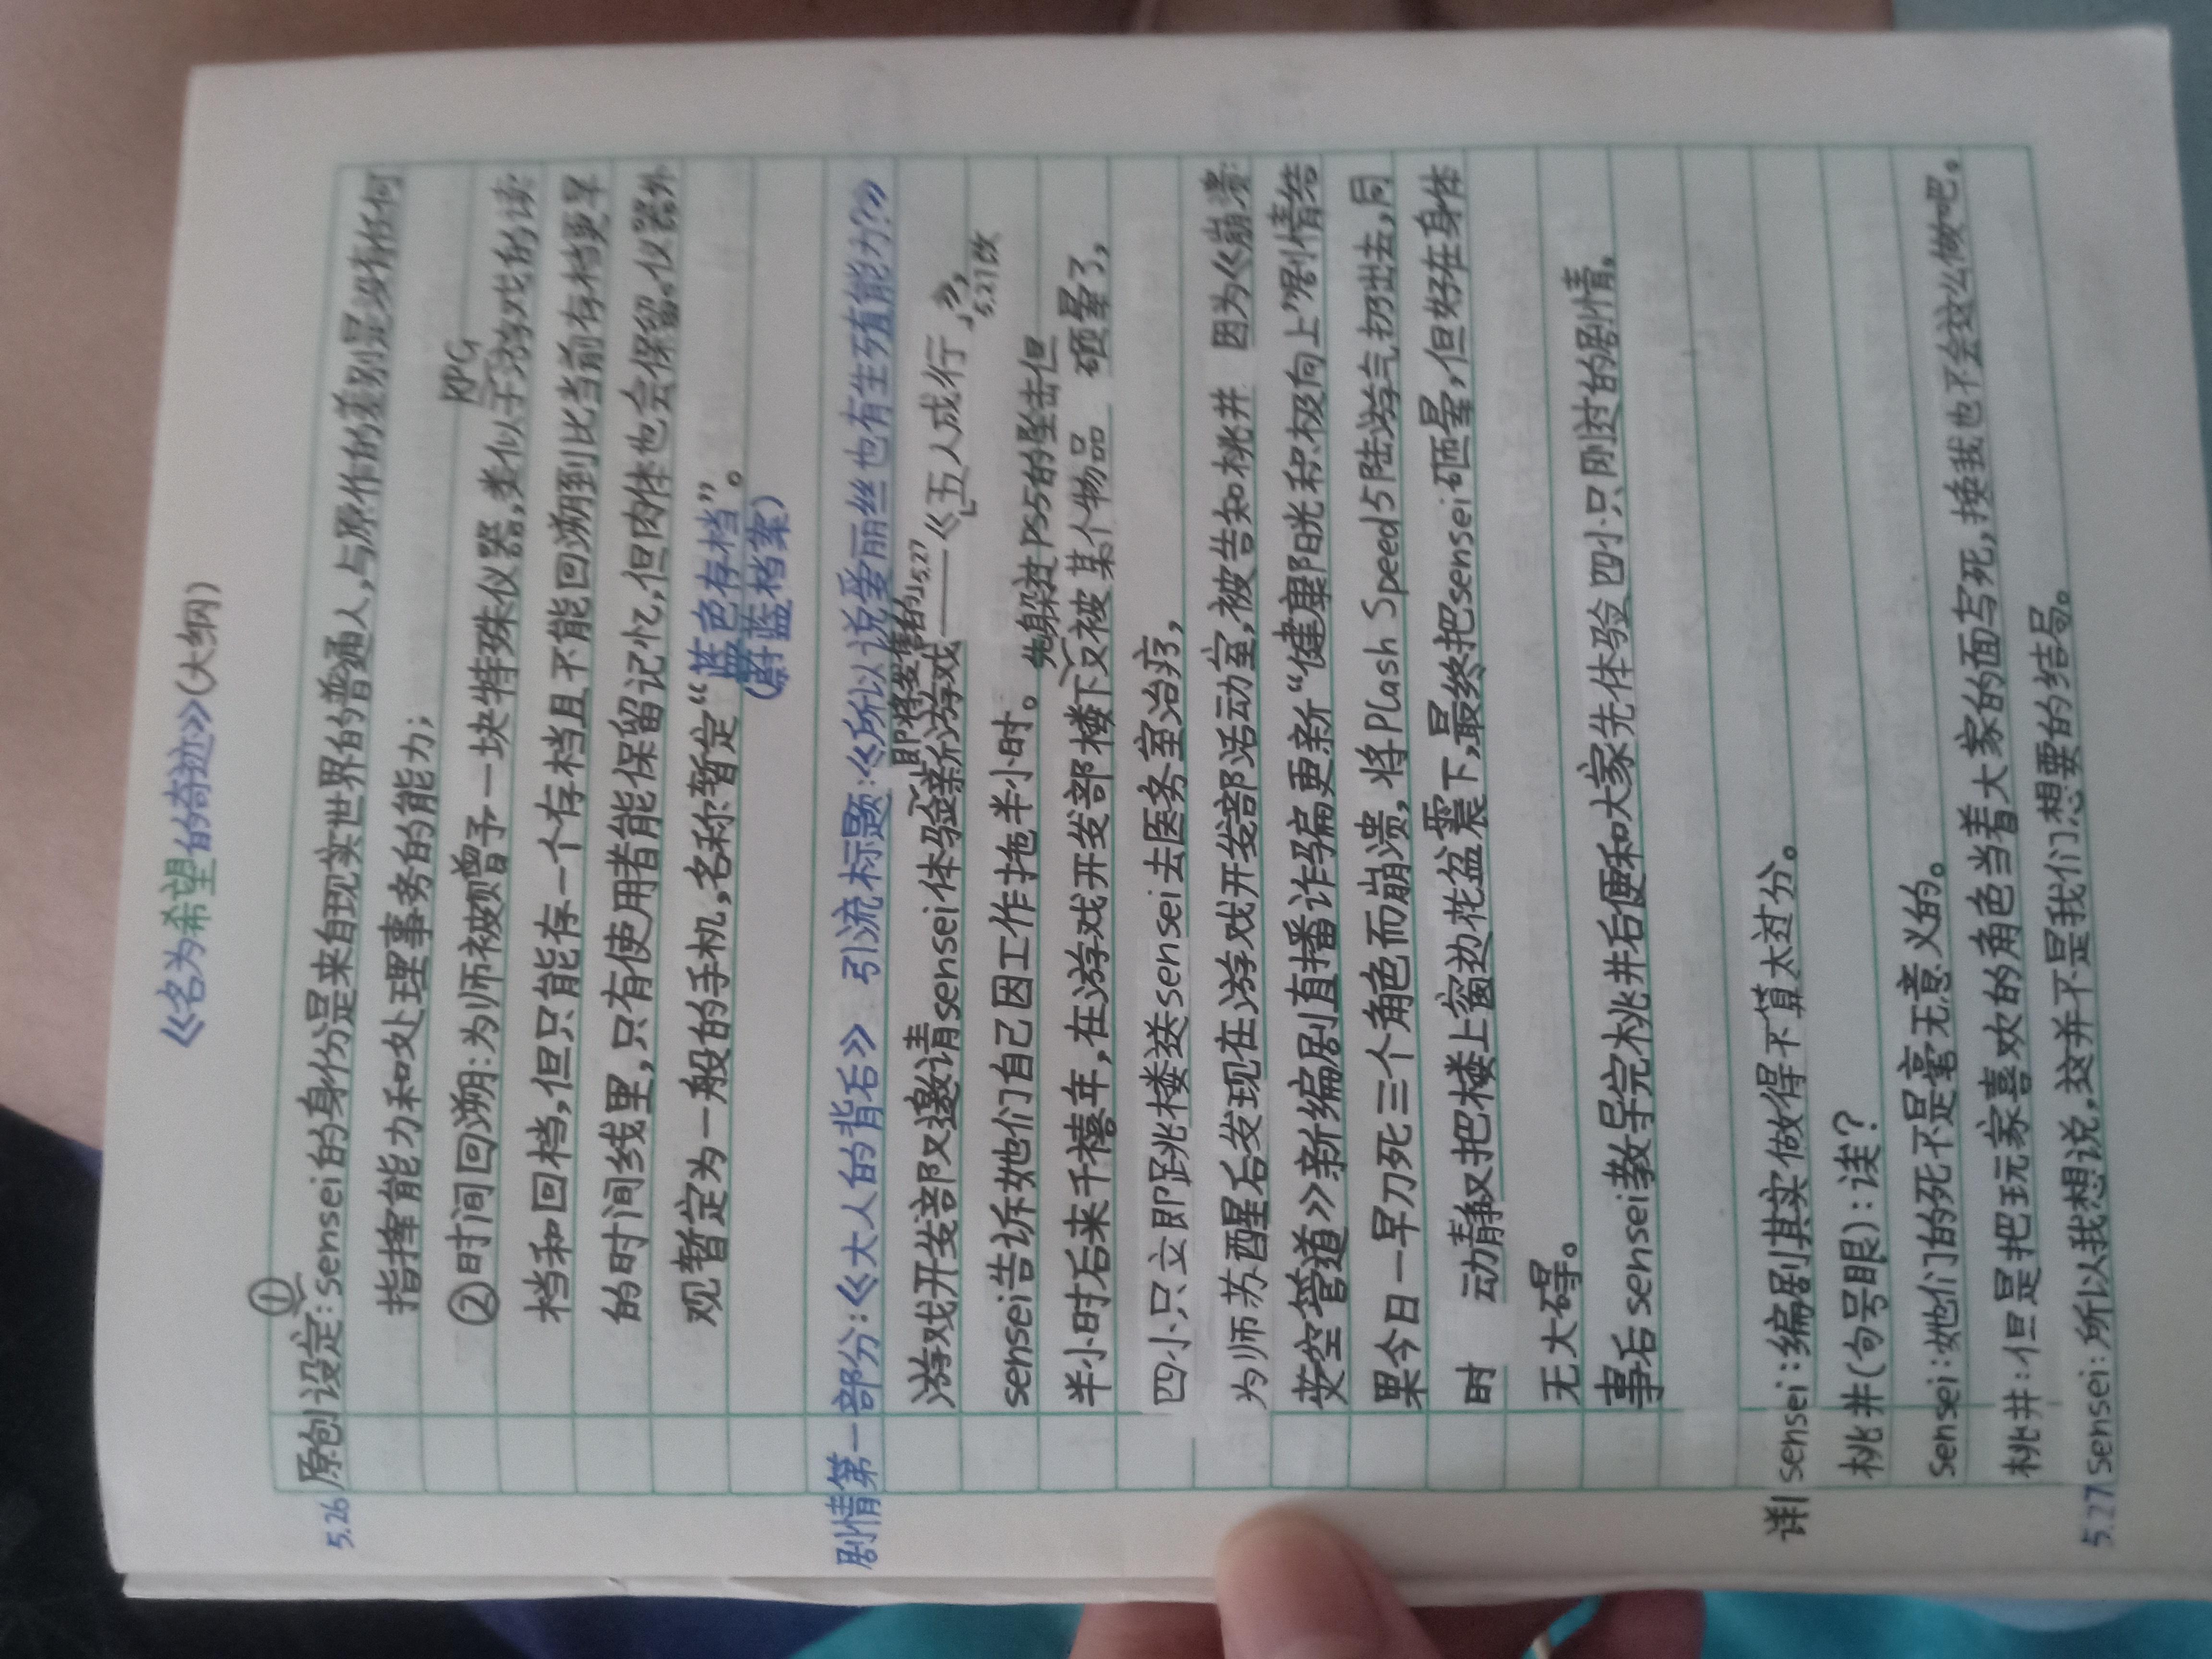 《名为希望的奇迹》(大纲)
5.26 原创设定:①sensei的身份是来自现实世界的普通人,与原作的差别是没有任何
指挥能力和处理事务的能力;
②时间回溯:为师被赠予一块特殊仪器,类似于RPG游戏的读
档和回档,但只能存一个存档且不能回溯到比当前存档更早
的时间线里,只有使用者能保留记忆,但肉体也会保留.仪器外
观暂定为一般的手机,名称暂定“蓝色存档”。
(蔚蓝档案)
剧情第一部分:《大人的背后》 引流标题:《所以说爱丽丝也有生殖能力?》
游戏开发部又邀请sensei体验「即将发售的」5.27新游戏——《「五人成行」》,5.27改
sensei告诉她们自己因工作拖半小时。
半小时后来千禧年,在游戏开发部楼下躲过PS5的坠击但又被某个物品 砸晕了,
四小只立即跳楼送sensei去医务室治疗,
为师苏醒后发现在游戏开发部活动室,被告知桃井 因为《崩溃:
荧空管道》新编剧直播诈骗更新“健康阳光积极向上”剧情结
果今日一早刀死三个角色而崩溃,将PLash Speed5陆游气扔出去,同
时 动静又把楼上窗边花盆震下,最终把sensei砸晕,但好在身体
无大碍。
事后sensei教导完桃井后便和大家先体验四小只刚过的剧情,
详| sensei:编剧其实做得不算太过分。
桃井(句号眼):诶?
sensei:她们的死不是毫无意义的。
桃井:但是把玩家喜欢的角色当着大家的面写死,换我也不会这么做吧。
5.27 sensei:所以我想说,这并不是我们想要的结局。